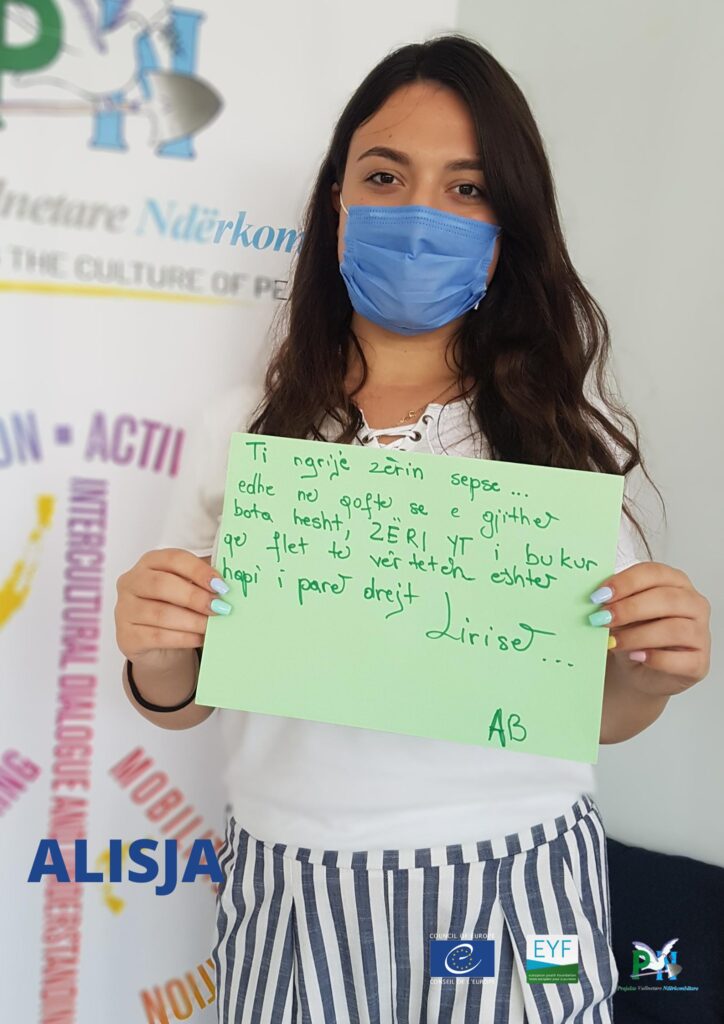 P N
Vullnetare Ndërkom
G THE CULTURE OF PE
ION • ACTI
INTERCULTURAL DIALOGUE AND UNDERSTANDIN
MOBILIT
ING
ITION
Ti ngrije zërin sepse ...
edhe ne qofte se e gjithe
bota hesht, ZËRI YT i bukur
qe flet te verteten eshte
hapi i pare drejt Lirise ...
AB
ALISJA
COUNCIL OF EUROPE
CONSEIL DE L'EUROPE
EYF
european youth foundation
PN
Projekte Vullnetare Ndërkombëtare